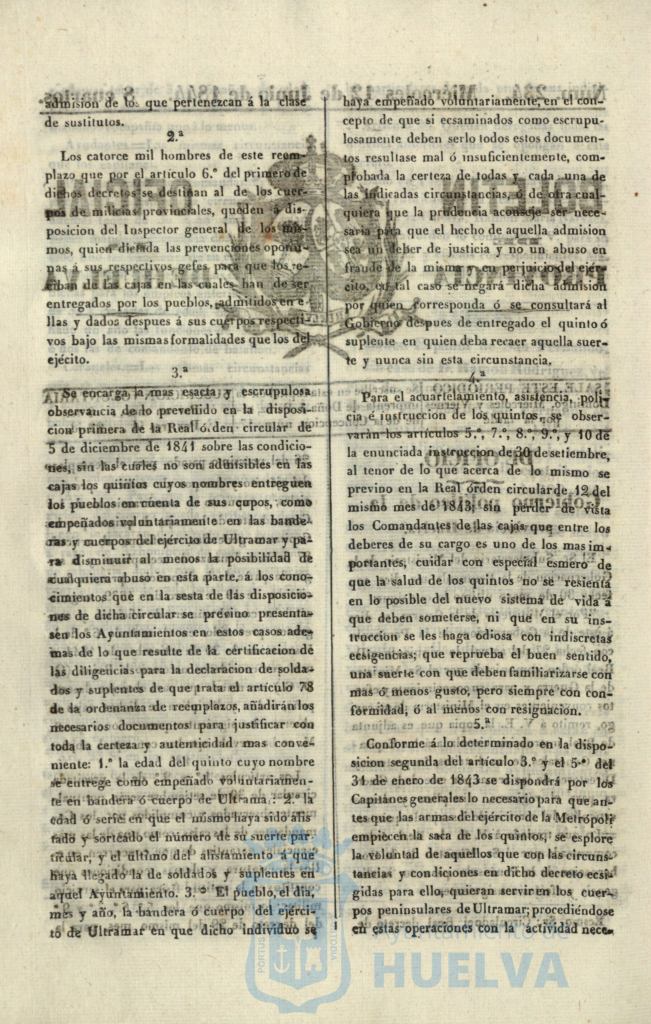 admision de los que pertenezcan á la clase
de sustitutos.
2.ª
Los catorce mil hombres de este reem-
plazo que por el artículo 6.º del primero de
dichos decretos se destinan al de los cuer-
pos de milicias provinciales, queden á dis-
posicion del Inspector general de los mis-
mos, quien dictada las prevenciones oportu-
nas á sus respectivos gefes para que los re-
ciban de las cajas en las cuales han de ser
entregados por los pueblos, admitidos en e-
llas y dados despues á sus cuerpos respecti-
vos bajo las mismas formalidades que los del
ejército.
3.ª
Se encarga la mas esacta y escrupulosa
observancia de lo prevenido en la disposi-
cion primera de la Real órden circular de
5 de diciembre de 1841 sobre las condicio-
nes, sin las cuales no son admisibles en las
cajas los quintos cuyos nombres entreguen
los pueblos en cuenta de sus cupos, como
empeñados voluntariamente en las bande-
ras y cuerpos del ejército de Ultramar y pa-
ra disminuir al menos la posibilidad de
cualquiera abuso en esta parte, á los cono-
cimientos que en la sesta de las disposicio-
nes de dicha circular se previno presenta-
sen los Ayuntamientos en estos casos ade-
mas de lo que resulte de la certificacion de
las diligencias para la declaracion de solda-
dos y suplentes de que trata el artículo 78
de la ordenanza de reemplazos, añadirán los
necesarios documentos para justificar con
toda la certeza y autenticidad mas conve-
niente: 1.º la edad del quinto cuyo nombre
se entrege como empeñado voluntariamen-
te en bandera ó cuerpo de Ultramar: 2.º la
edad ó serie en que el mismo haya sido alis-
tado y sorteado el número de su suerte par-
ticular, y el último del alistamiento á que
haya llegado la de soldados y suplentes en
aquel Ayuntamiento. 3.º El pueblo, el dia,
mes y año, la bandera ó cuerpo del ejérci-
to de Ultramar en que dicho individuo se
haya empeñado voluntariamente, en el con-
cepto de que si ecsaminados como escrupu-
losamente deben serlo todos estos documen-
tos resultase mal ó insuficientemente, com-
probada la certeza de todas y cada una de
las indicadas circunstancias, ó de otra cual-
quiera que la prudencia aconseje ser nece-
saria para que el hecho de aquella admision
sea un deber de justicia y no un abuso en
fraude de la misma y en perjuicio del ejér-
cito, en tal caso se negará dicha admision
por quien corresponda ó se consultará al
Gobierno despues de entregado el quinto ó
suplente en quien deba recaer aquella suer-
te y nunca sin esta circunstancia.
4.ª
Para el acuartelamiento, asistencia, poli-
cia é instruccion de los quintos, se obser-
varán los artículos 5.º, 7.º, 8.º, 9.º, y 10 de
la enunciada instruccion de 30 de setiembre,
al tenor de lo que acerca de lo mismo se
previno en la Real órden circular de 12 del
mismo mes de 1843; sin perder de vista
los Comandantes de las cajas que entre los
deberes de su cargo es uno de los mas im-
portantes, cuidar con especial esmero de
que la salud de los quintos no se resienta
en lo posible del nuevo sistema de vida á
que deben someterse, ni que en su ins-
truccion se les haga odiosa con indiscretas
ecsigencias; que reprueba el buen sentido,
una suerte con que deben familiarizarse con
mas ó menos gusto, pero siempre con con-
formidad, ó al menos con resignacion.
5.ª
Conforme á lo determinado en la dispo-
sicion segunda del artículo 3.º y el 5.º del
31 de enero de 1843 se dispondrá por los
Capitanes generales lo necesario para que an-
tes que las armas del ejército de la Metrópoli
empiecen la saca de los quintos, se esplore
la voluntad de aquellos que con las circuns-
tancias y condiciones en dicho decreto ecsi-
gidas para ello, quieran servir en los cuer-
pos peninsulares de Ultramar; procediéndose
en estas operaciones con la actividad nece-
Ayuntamiento de
HUELVA